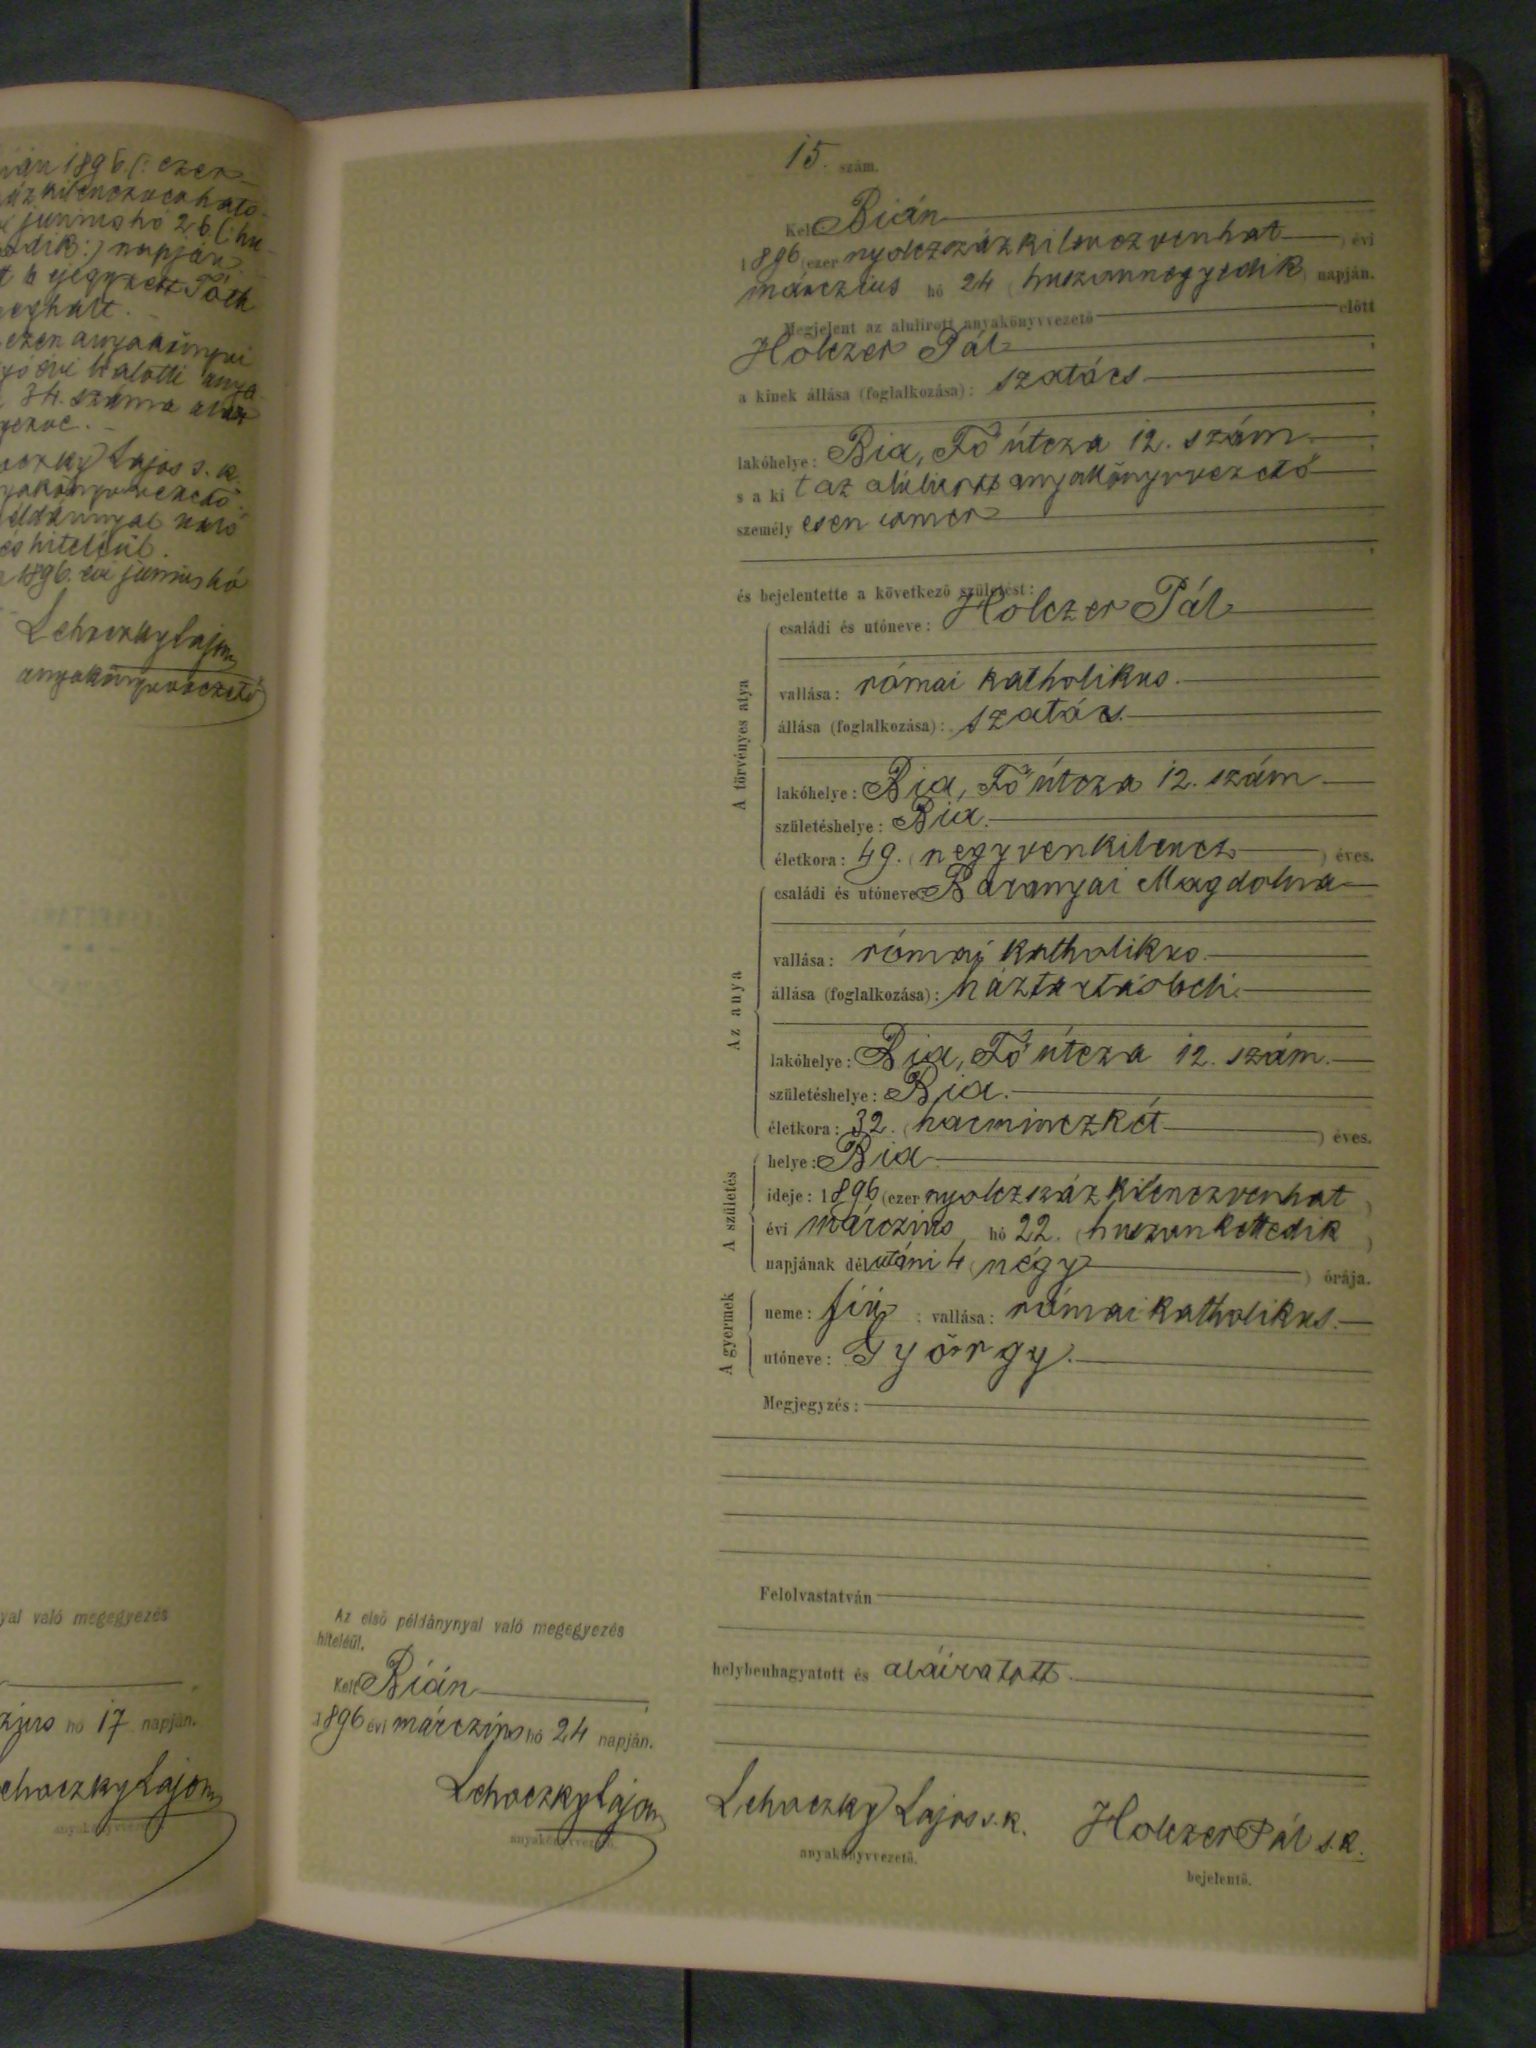 1896. (: ezer
kilenczvenhato
junius hó 26 (: hu
odik :) napján
Tóth
meghalt.
ezen anyakönyvi
évi halotti anya
34. száma alatt
Lajos s. k.
anyakönyvvezető
való
és hiteléül.
1896. évi junius hó
Lehoczky Lajos
anyakönyvvezető
nyal való megegyezés
hó 17 napján.
Lehoczky Lajos
anyakönyvvezető.
15. szám.
Kelt Bián
1896 (ezer nyolczszázkilenczvenhat ) évi
márczius hó 24 ( huszonnegyedik ) napján.
Megjelent az alulirott anyakönyvvezető előtt
Holczer Pál
a kinek állása (foglalkozása): szatócs
lakóhelye: Bia, Fő útcza 12. szám.
s a kit az alulirott anyakönyvvezető
személyesen ismer
és bejelentette a következő születést:
A törvényes atya
családi és utóneve: Holczer Pál
vallása: római katholikus.
állása (foglalkozása): szatócs.
lakóhelye: Bia, Fő útcza 12. szám
születéshelye: Bia.
életkora: 49. ( negyvenkilencz ) éves.
Az anya
családi és utóneve: Baranyai Magdolna
vallása: római katholikus.
állása (foglalkozása): háztartásbeli.
lakóhelye: Bia, Fő útcza 12. szám.
születéshelye: Bia.
életkora: 32. ( harminczkét ) éves.
A születés
helye: Bia
ideje: 1896 (ezer nyolczszázkilenczvenhat )
évi márczius hó 22. ( huszonkettedik )
napjának délutáni 4 ( négy ) órája.
A gyermek
neme: fiú ; vallása: római katholikus.
utóneve: György.
Megjegyzés:
Felolvastatván
helybenhagyatott és aláiratott.
Az első példánynyal való megegyezés
hiteléül.
Kelt Bián
1896 évi márczius hó 24 napján.
Lehoczky Lajos
anyakönyvvezető.
Lehoczky Lajos s. k.
anyakönyvvezető.
Holczer Pál s. k.
bejelentő.